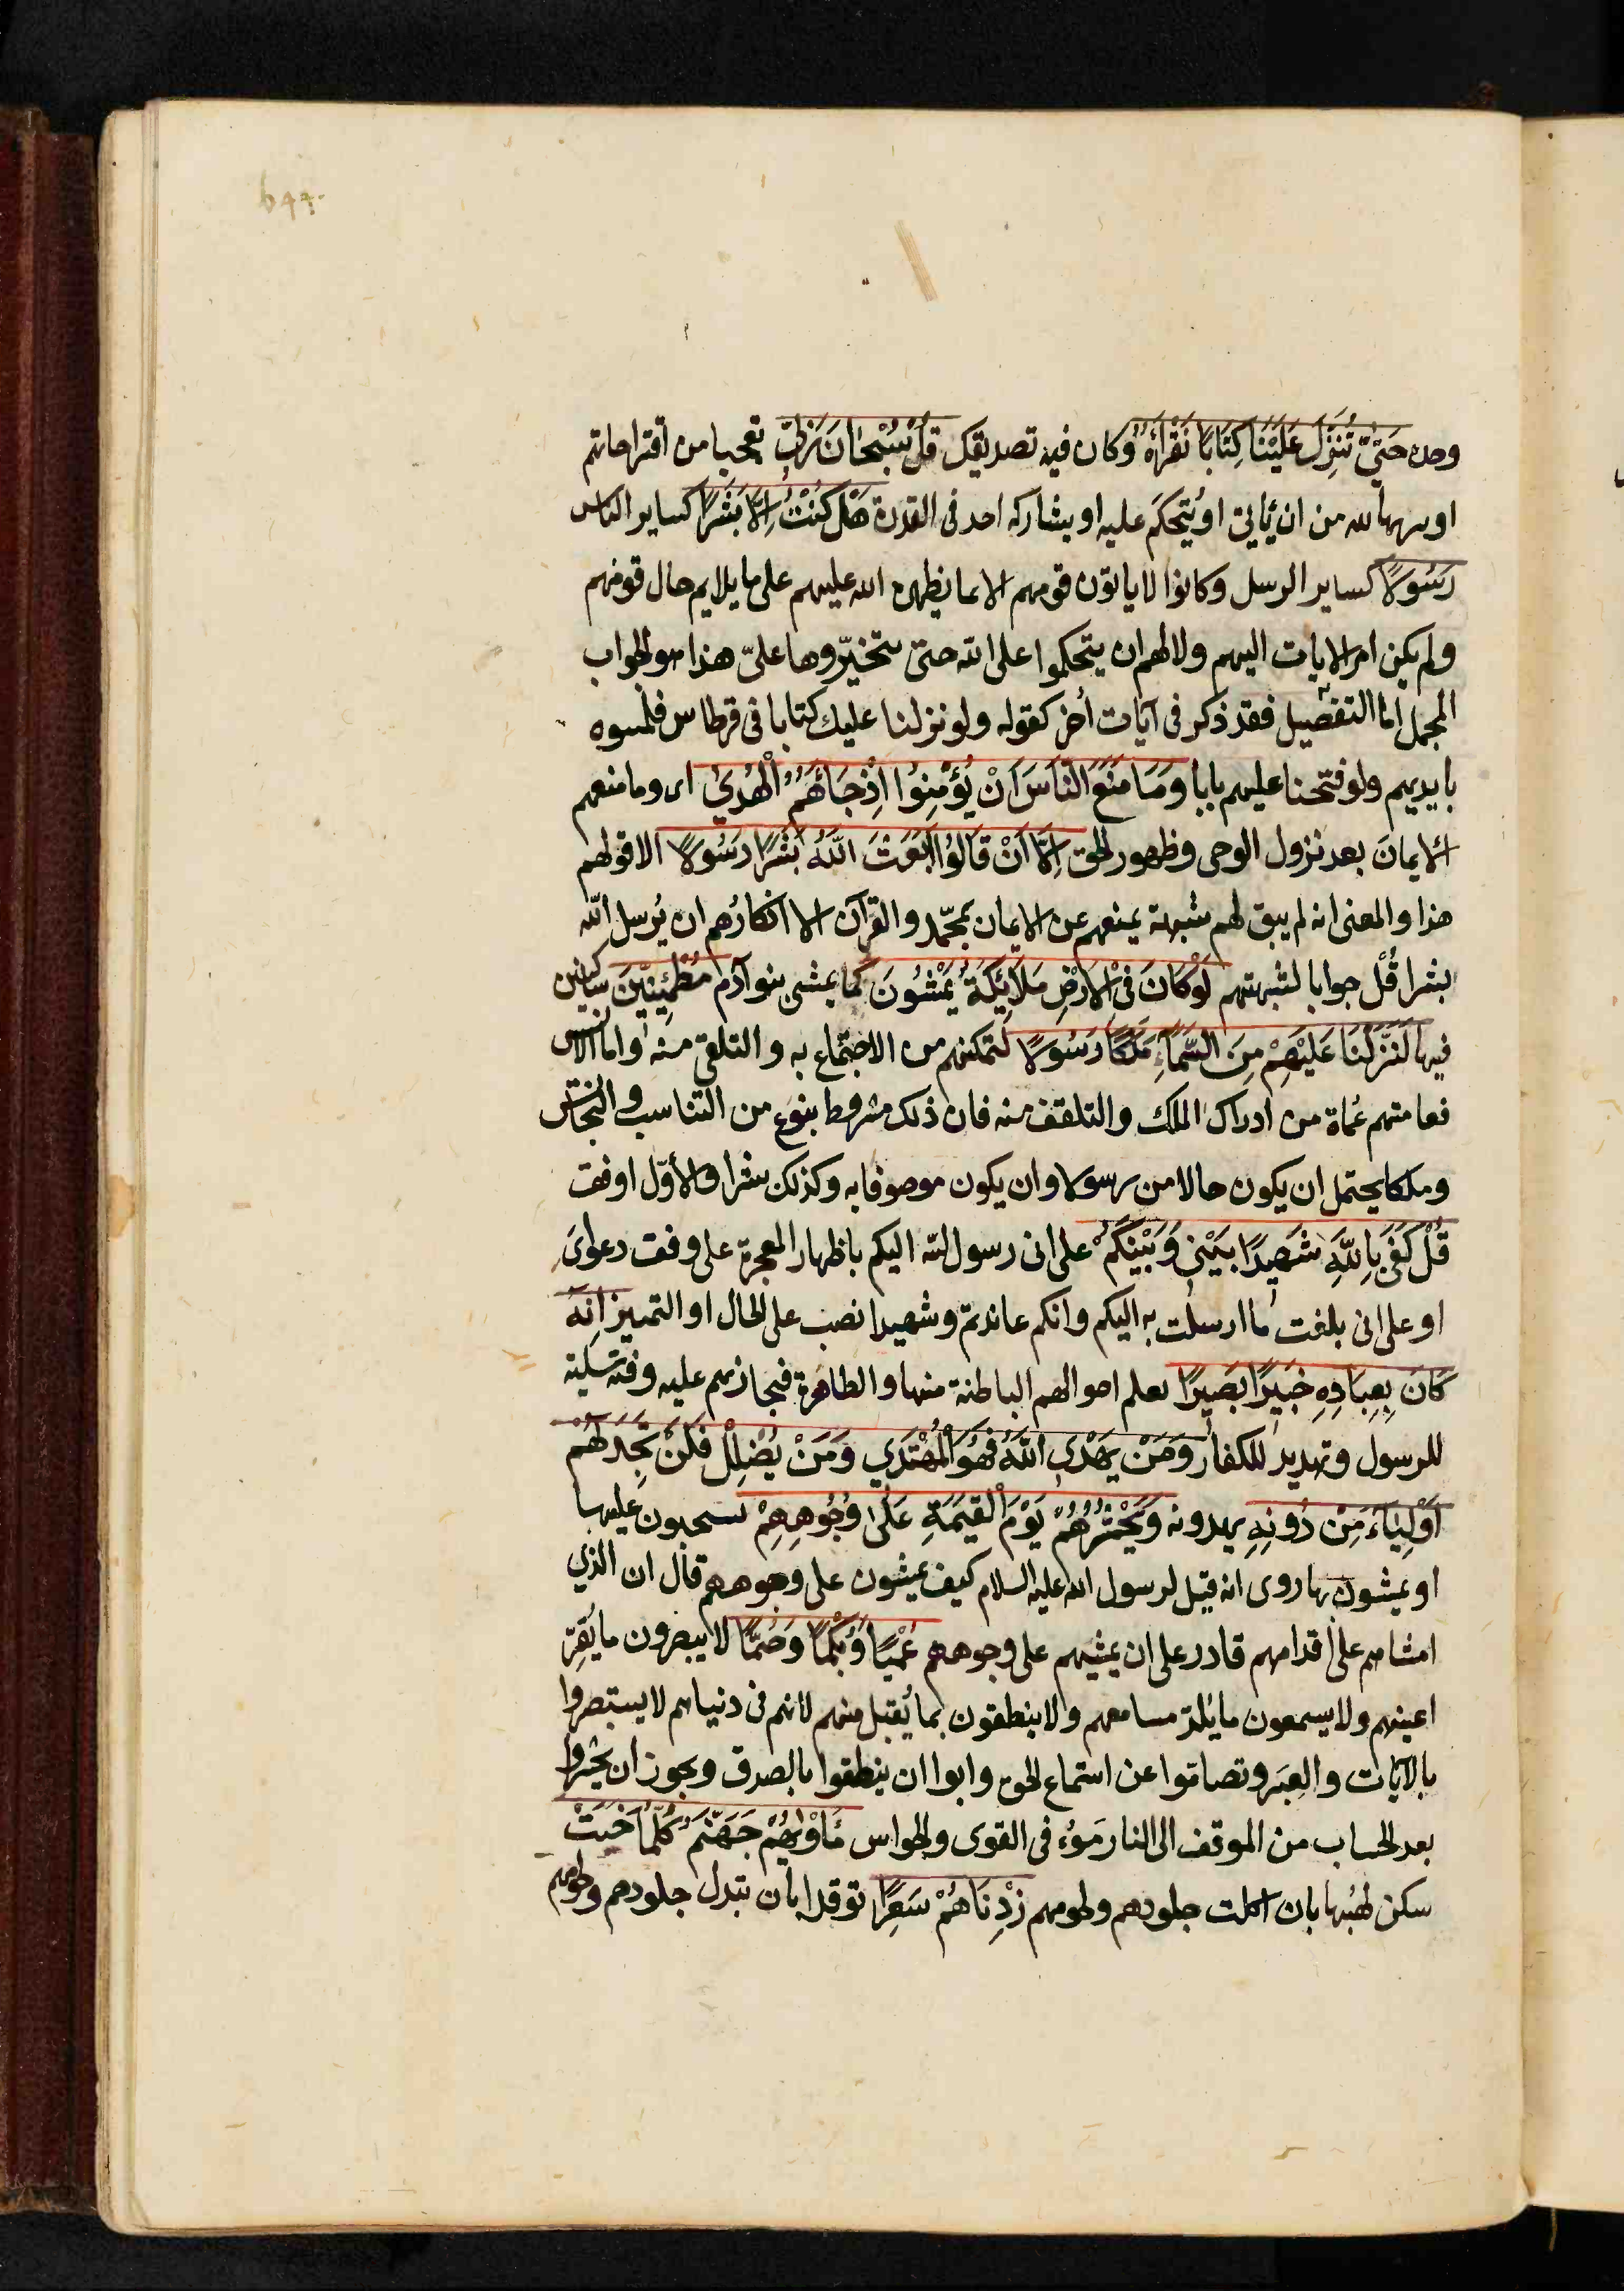 وحده حَتّٰى تُنَزِّلَ عَلَيْنَا كِتَابًا نَقْرَأُهُ وكان فيه تصديقك قُلْ سُبْحَانَ رَبِّي تعجبا من اقتراحاتهم
او تنزيها لله من ان يأتي او يُتحكَم عليه او يشاركه احد فى القدرة هَلْ كُنْتُ اِلَّا بَشَرًا كساير الناس
رَسُولًا كساير الرسل وكانوا لا ياتون قومهم الا بما يظهره الله عليهم على ما يلايم حال قومهم
ولم يكن امر الايات اليهم ولا لهم ان يتحكموا على الله حتى تتخيّروها علىّ هذا هو الجواب
المجمل اما التفصيل فقد ذكر فى آيات أخر كقوله ولو نزلنا عليك كتابا فى قرطاس فلمسوه
بايديهم ولو فتحنا عليهم بابا وَمَا مَنَعَ النَّاسَ اَنْ يُؤْمِنُوا اِذْ جَائَهُمُ الْهُدٰى اى وما منعهم
الايمانَ بعد نزول الوحى وظهور الحق اِلَّا اَنْ قَالُوا اَبَعَثَ اللّٰهُ بَشَرًا رَسُولًا الا قولهم
هذا والمعنى انه لم يبق لهم شبهة يمنعهم عن الايمان بمحمّد والقرآن الا انكارُهم ان يُرسل الله
بشرا قُلْ جوابا لشبهتهم لَوْ كَانَ فِى الْاَرْضِ مَلَائِكَةٌ يَمْشُونَ كما يمشى بنو آدم مُطْمَئِنِّينَ ساكنين
فيها لَنَزَّلْنَا عَلَيْهِمْ مِنَ السَّمَاءِ مَلَكًا رَسُولًا لتمكنهم من الاجتماع به والتلقى منه واما الانس
فعامتهم عُماة من ادراك الملك والتلقف منه فان ذلك مشروط بنوع من التناسب والتجانس
وملكا يحتمل ان يكون حالا من رسولا وان يكون موصوفا به وكذلك بشرا والأوّل اوفق
قُلْ كَفَى بِاللّٰهِ شَهِيدًا بَيْنِى وَبَيْنَكُمْ على انى رسول الله اليكم باظهار المعجزة على وفق دعواىَ
او على انى بلغت ما ارسلت به اليكم وانكم عاندتم وشهيدا نصب على الحال او التمييز اِنَّهُ
كَانَ بِعِبَادِهِ خَبِيرًا بَصِيرًا يعلم احوالهم الباطنة منها والظاهرة فيجازيهم عليه وفيه تسلية
للرسول وتهديد للكفار وَمَنْ يَهْدِى اللّٰهُ فَهُوَ الْمُهْتَدِي وَمَنْ يُضْلِلْ فَلَنْ تَجِدَ لَهُمْ
اَوْلِيَاءَ مِنْ دُونِهِ يهدونه وَنَحْشُرُهُمْ يَوْمَ الْقِيٰمَةِ عَلٰى وُجُوهِهِمْ يسحبون عليها
او يمشون بها روى انه قيل لرسول الله عليه السلام كيف يمشون على وجوههم قال ان الذي
امشاهم على اقدامهم قادر على ان يمشيهم على وجوههم عُمْيًا وَبُكْمًا وَصُمًّا لا يبصرون ما يُقِرّ
اعينهم ولا يسمعون ما يُلذّ مسامعهم ولا ينطقون بما يُقبل منهم لانهم فى دنياهم لا يستبصروا
بالآيات والعِبَر وتصامّوا عن استماع الحق وابوا ان ينطقوا بالصدق ويجوز ان يحشروا
بعد الحساب من الموقف الى النار مَوُءفى القوى والحواس مَأْوٰيهُمْ جَهَنَّمُ كُلَّمَا خَبَتْ
سكن لهبُها بان اكلت جلودهم ولحومهم زِدْنَاهُمْ سَعِيرًا توقدا بان تبدل جلودهم ولحومهم